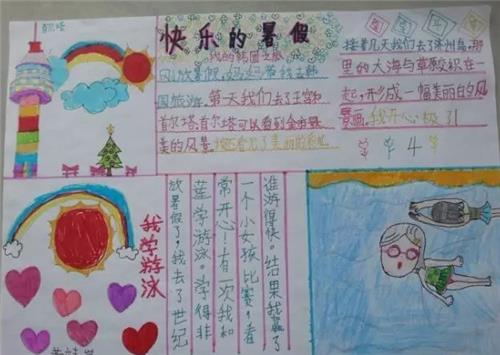 首尔塔
快乐的暑假
我的韩国之旅
放暑假,妈妈带我去韩
国旅游,第一天我们去了王宫和
首尔塔,首尔塔可以看到全市最
美的风景,
接着几天我们去了济州岛,那
里的大海与草原交织在一
起,形成一幅美丽的风
景画。我开心极了!
4
我学游泳
放暑假了,我去了世纪
莲学游泳。学得非
常开心!有一次我和
一个小女孩比赛,看
谁游得快。结果我赢了